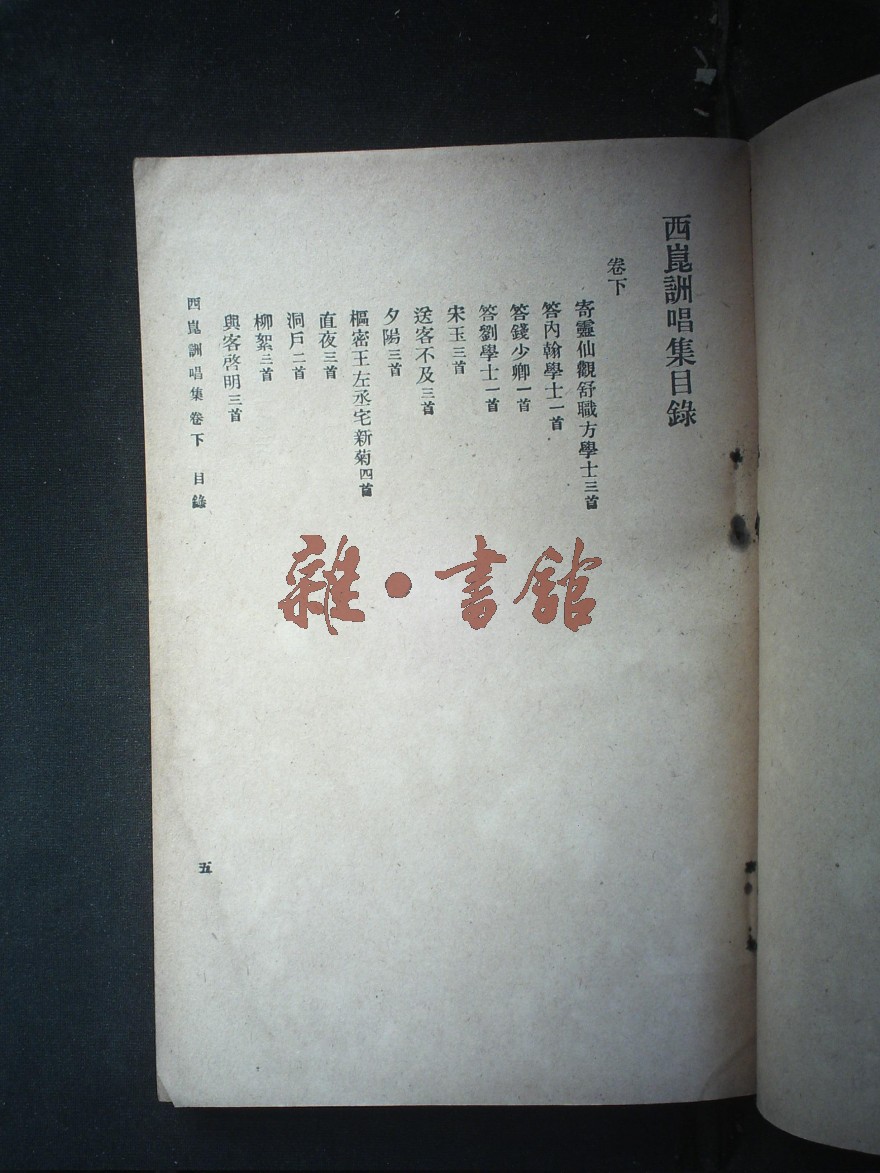 西崑詶唱集目錄
卷下
寄靈仙觀舒職方學士三首
答內翰學士一首
答錢少卿一首
答劉學士一首
宋玉三首
送客不及三首
夕陽三首
樞密王左丞宅新菊四首
直夜三首
洞戶二首
柳絮三首
與客啓明三首
西崑詶唱集卷下 目錄
五
雜·書館